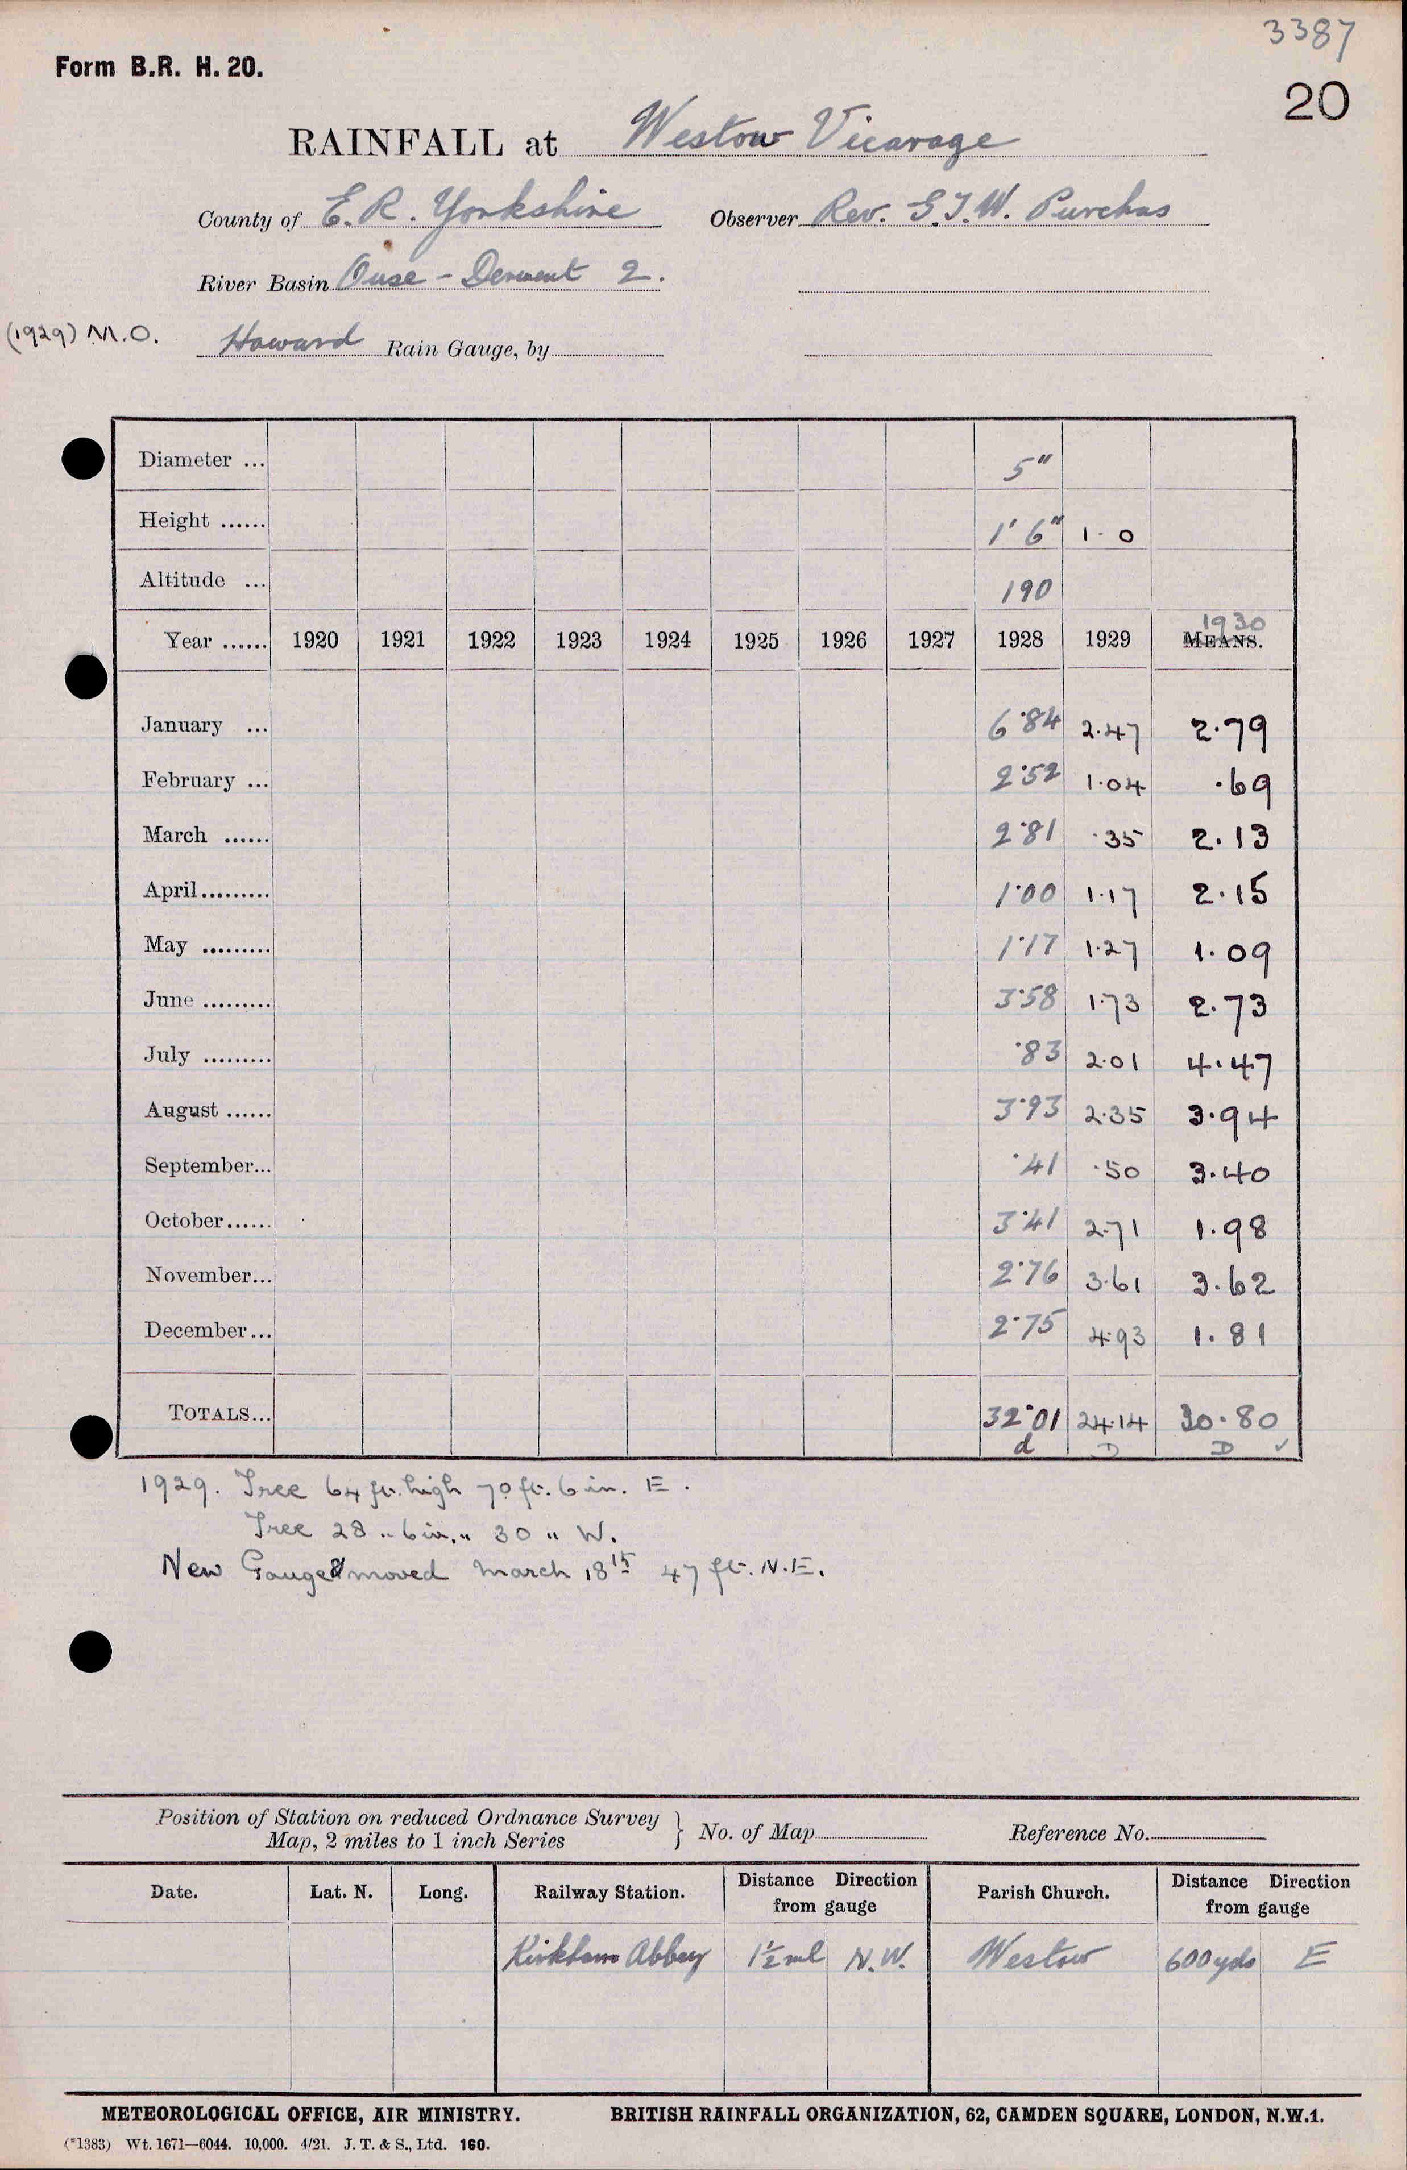 3387
Form B.R. H. 20.
20
RAINFALL at Westow Vicarage
County of E.R. Yorkshire Observer Rev. G.T.W. Purchas
River Basin Ouse - Derwent 2.
(1929) M.O. Howard Rain Gauge, by
Diameter ... 5"
Height ...... 1' 6" 1-0
Altitude ... 190
1930
Year ...... 1920 1921 1922 1923 1924 1925 1926 1927 1928 1929 MEANS.
January ... 6·84 2.47 2.79
February ... 2·52 1.04 .69
March ...... 2·81 .35 2.13
April ......... 1·00 1.17 2.15
May ......... 1·17 1.27 1.09
June ......... 3·58 1.73 2.73
July ......... ·83 2.01 4.47
August ...... 3·93 2.35 3.94
September... ·41 .50 3.40
October ...... 3·41 2.71 1.98
November... 2·76 3.61 3.62
December... 2·75 4.93 1.81
TOTALS... 32·01 24.14 30.80
d D D ✓
1929. Tree 64 ft. high 70 ft. 6 in. E.
Tree 28 " 6 in. " 30 " W.
New Gauge & moved March 18th 47 ft. N.E.
Position of Station on reduced Ordnance Survey
Map, 2 miles to 1 inch Series } No. of Map Reference No.
Date. Lat. N. Long. Railway Station. Distance Direction from gauge Parish Church. Distance Direction from gauge
Kirkham Abbey 1½ ml N.W. Westow 600 yds E
METEOROLOGICAL OFFICE, AIR MINISTRY. BRITISH RAINFALL ORGANIZATION, 62, CAMDEN SQUARE, LONDON, N.W.1.
(*1383) Wt. 1671—6044. 10,000. 4/21. J. T. & S., Ltd. 160.